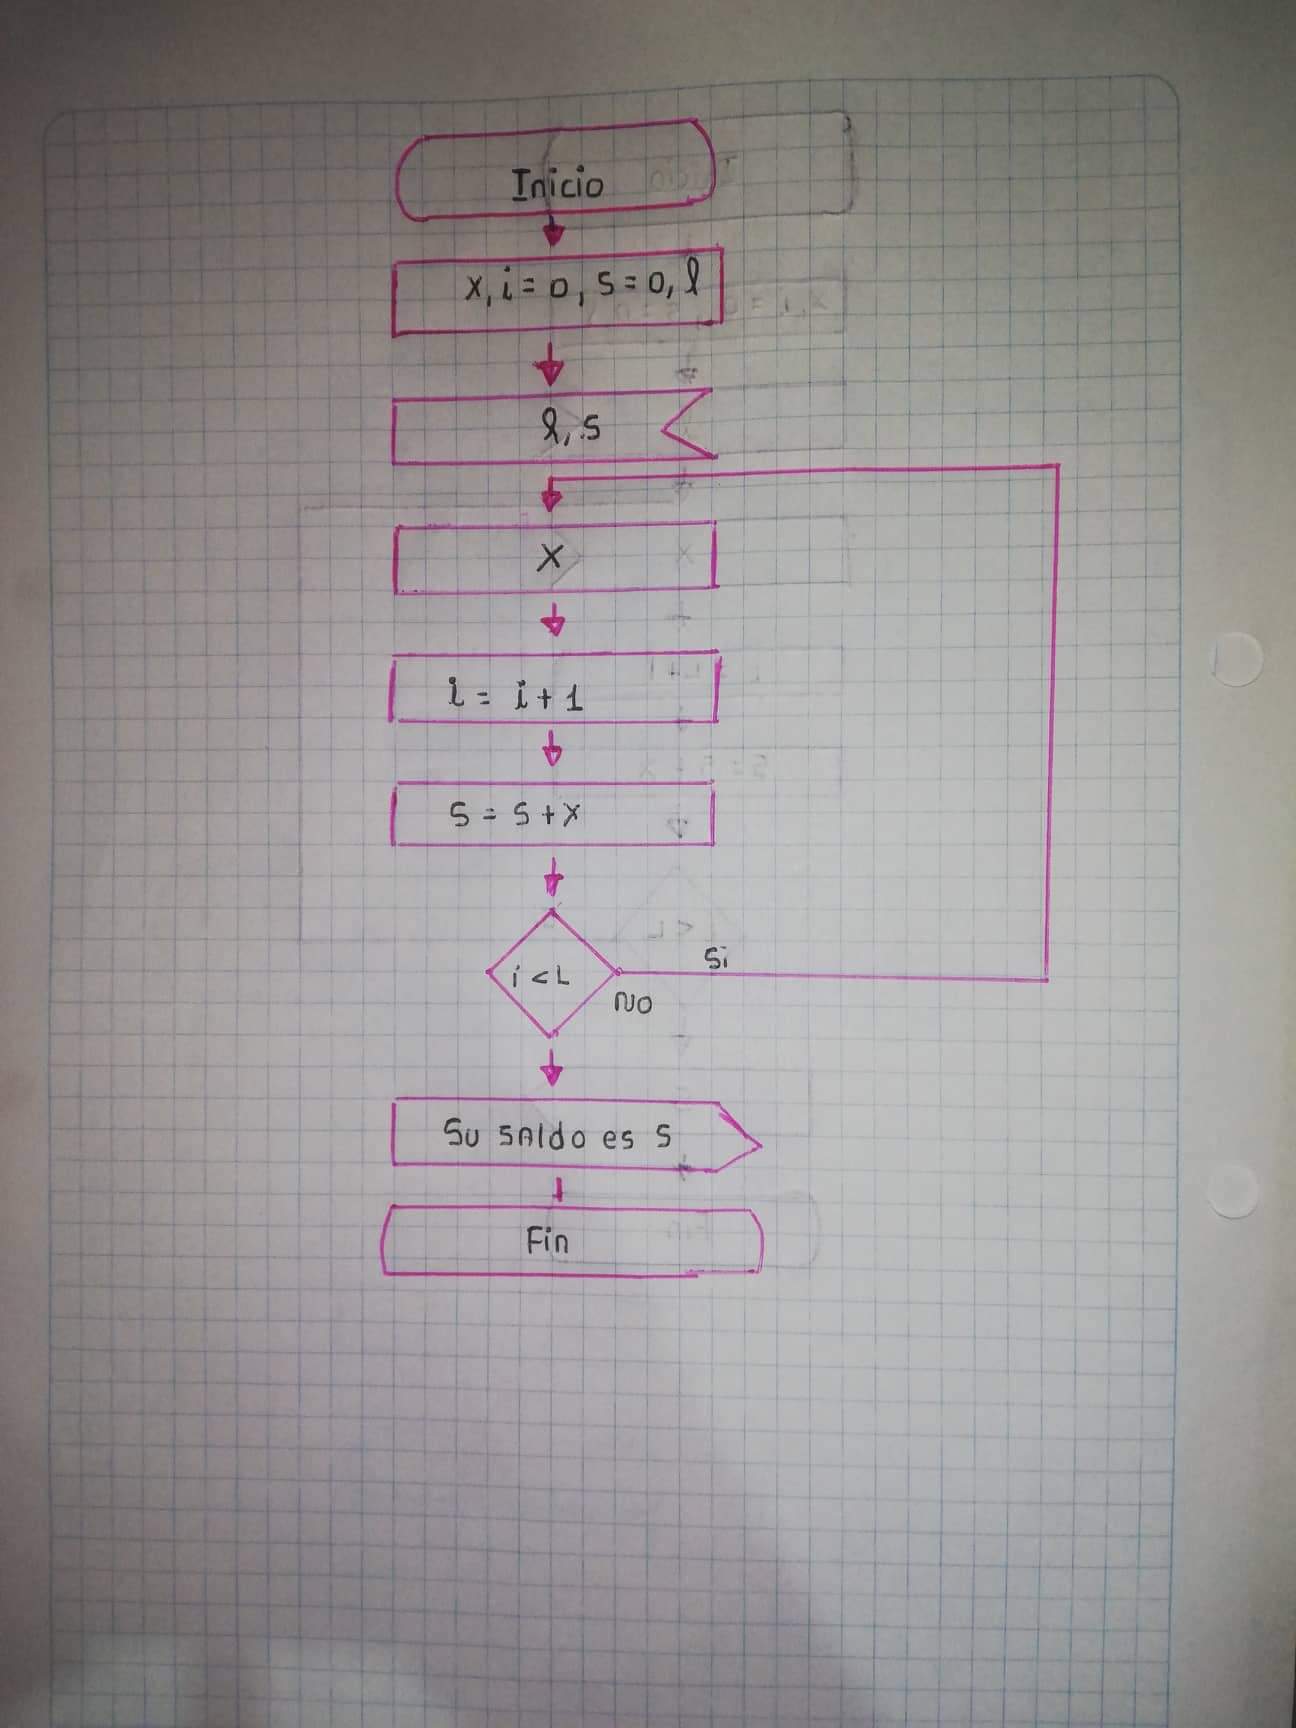 Inicio
x, i = 0, s = 0, l
l, s
X
i = i + 1
s = s + x
i < L
Si
No
Su saldo es s
Fin